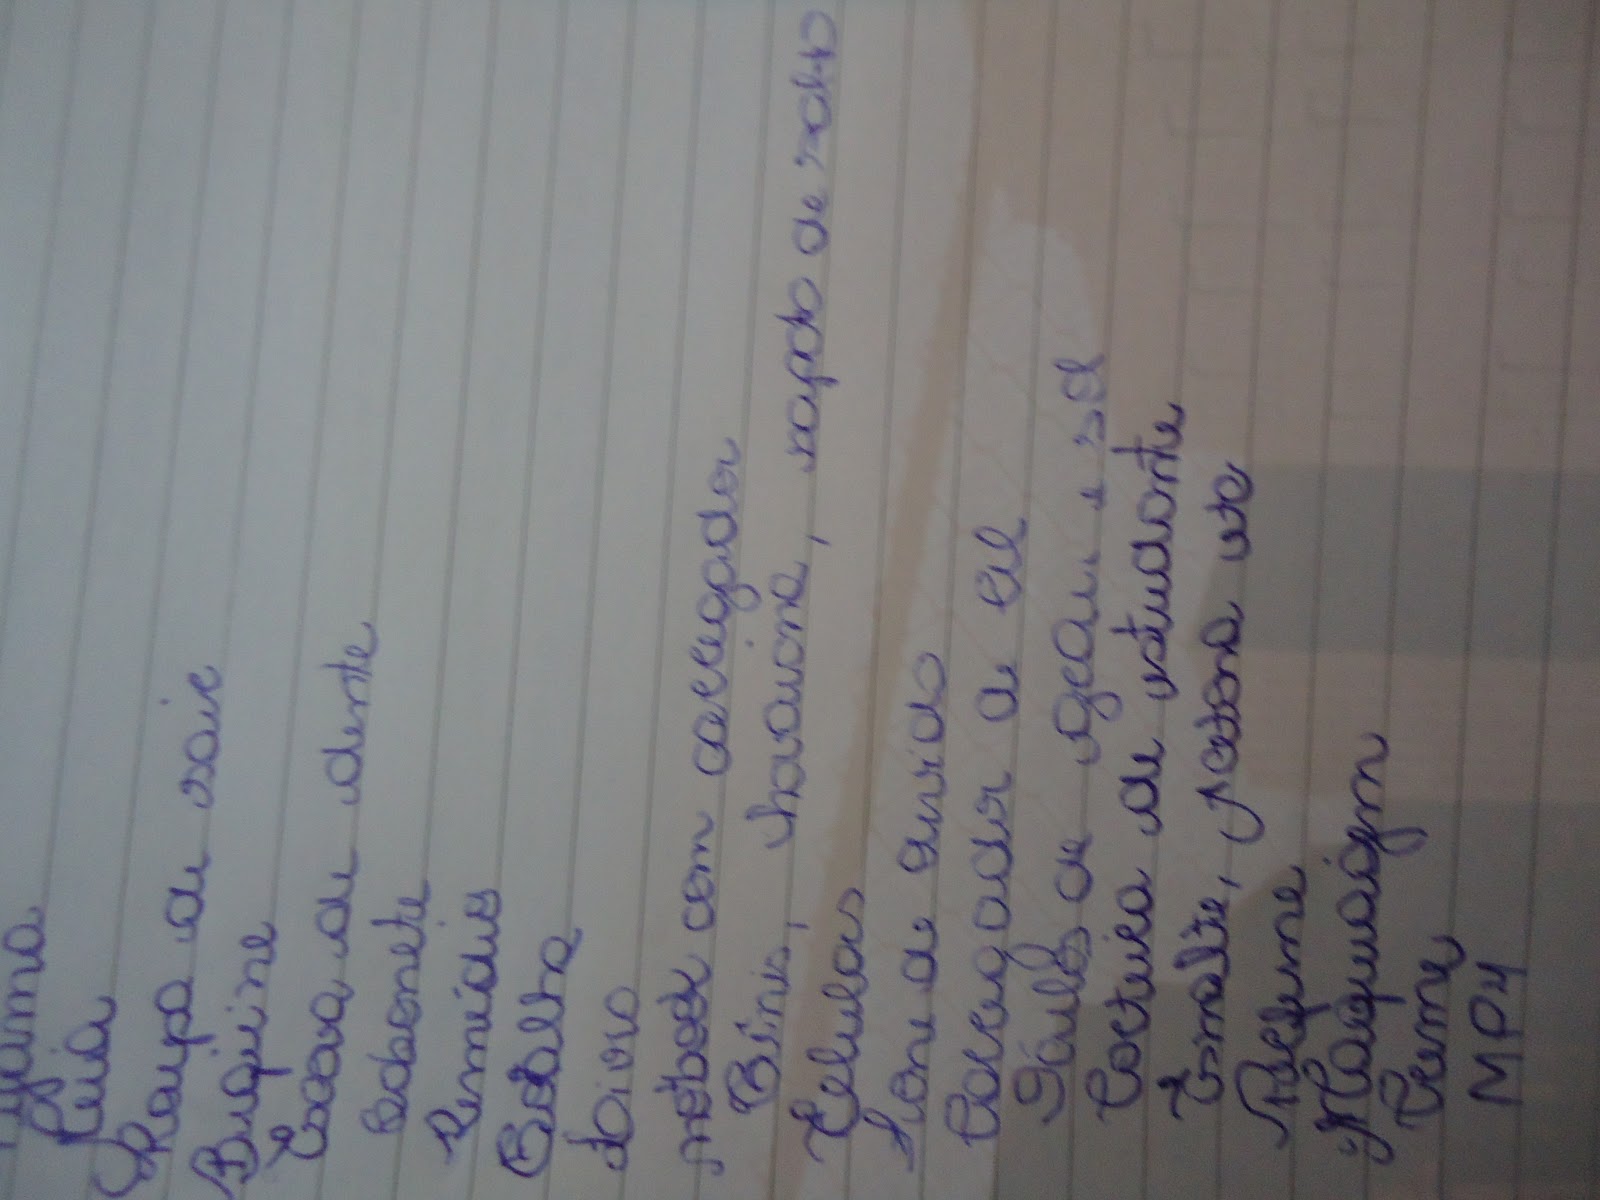 Roupa de sair
Biquine
Escova de dente
Sabonete
Remédios
Toalha
Livro
notbook com carregador
Tênis, havaiana, sapato de salto
Celular
Fone de ouvido
Carregador de cel
Óculos de grau e sol
Carteira de estudante
Esmalte, acetona etc
Maquiagem
Creme
MP4